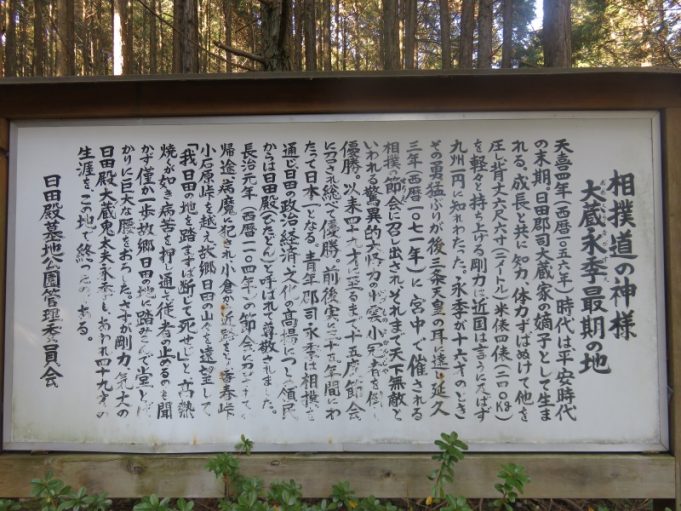 相撲道の神様
大蔵永季最期の地
天喜四年(西暦一〇五六年)時代は平安時代
の末期。日田郡司大蔵家の嫡子として生ま
れる。成長と共に知力、体力ずばぬけて他を
圧し背丈六尺六寸(二メートル)米俵四俵(二四〇kg)
を軽々と持ち上げる剛力は近国は言うに及ばず
九州一円に知れわたった。永季が十六才のとき
その勇猛ぶりが後三条天皇の耳に達し延久
三年(西暦一〇七一年)に宮中で催される
相撲の節会に召し出され、それまで天下無敵と
いわれる驚異的大怪力の出雲小冠者を倒し
優勝。以来四十九才に至るまで十五度節会
に召され総て優勝。前後実に三十五年間にわ
たって日本一となる。青年郡司永季は相撲を
通じ日田の政治経済文化の高揚につくし領民
からは日田殿(ひたどん)と呼ばれて尊敬されました。
長治元年(西暦一一〇四年)の節会に
帰途病魔に犯され小倉から近路 香春峠
小石原峠を越え故郷日田の山々を遠望して
「我日田の地を踏まずば断じて死せじ」と高熱
焼くが如き病苦を押し通して従者の止めるのを聞
かず僅か一歩故郷日田の地に踏みこんで堂と
かりに巨大な腰をおろした。さすが剛力、気丈の
日田殿大蔵鬼太夫永季も あわれ四十九才の
生涯をこの地で終ったのである。
日田殿墓地公園管理委員会